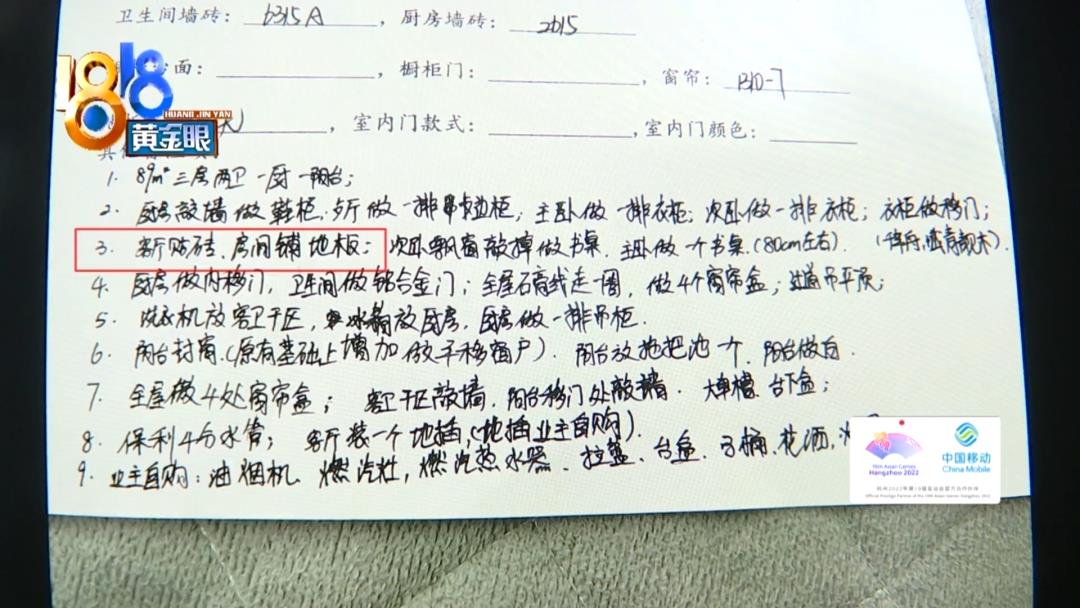 卫生间墙砖：6315A，厨房墙砖：2615
面：，橱柜门：，窗帘：B10-7
，室内门款式：，室内门颜色：
1818
HUANG JIN YAN
黄金眼
1. 89m² 三房两卫一厨一阳台；
2. 厨房敲墙做鞋柜，客厅做一排电边柜；主卧做一排衣柜；次卧做一排衣柜；衣柜做移门；
3. 客厅贴砖、房间铺地板；次卧飘窗敲掉做书桌，主卧做一个书桌（80cm左右）.
4. 厨房做内移门，卫生间做铝合金门；全屋石膏线走一圈，做4个窗帘盒；过道吊平顶；
5. 洗衣机放客卫干区，冰箱放厨房，厨房做一排吊柜.
6. 阳台封窗（原有基础上增加做平移窗户）. 阳台放拖把池一个，阳台做白.
7. 全屋做4处窗帘盒；客卫干区敲墙，阳台移门处敲墙. 大单槽、台下盆；
8. 保利4分水管；客厅装一个地插（地插业主自购）.
9. 业主自购：油烟机、燃汽灶，燃汽热水器、拉篮、台盆、马桶、花洒，
19th Asian Games
Hangzhou 2022
中国移动
China Mobile
杭州2022年第19届亚运会官方合作伙伴
Official Prestige Partner of the 19th Asian Games Hangzhou 2022